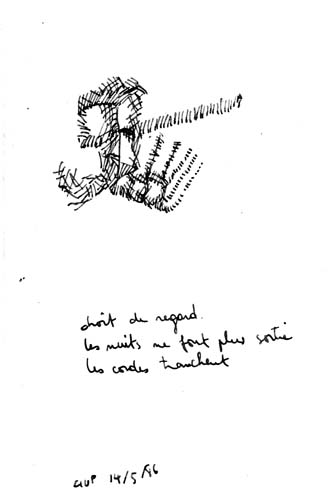 droit de regard.
les nuits ne font plus sortie
les cordes tranchent
14/5/96